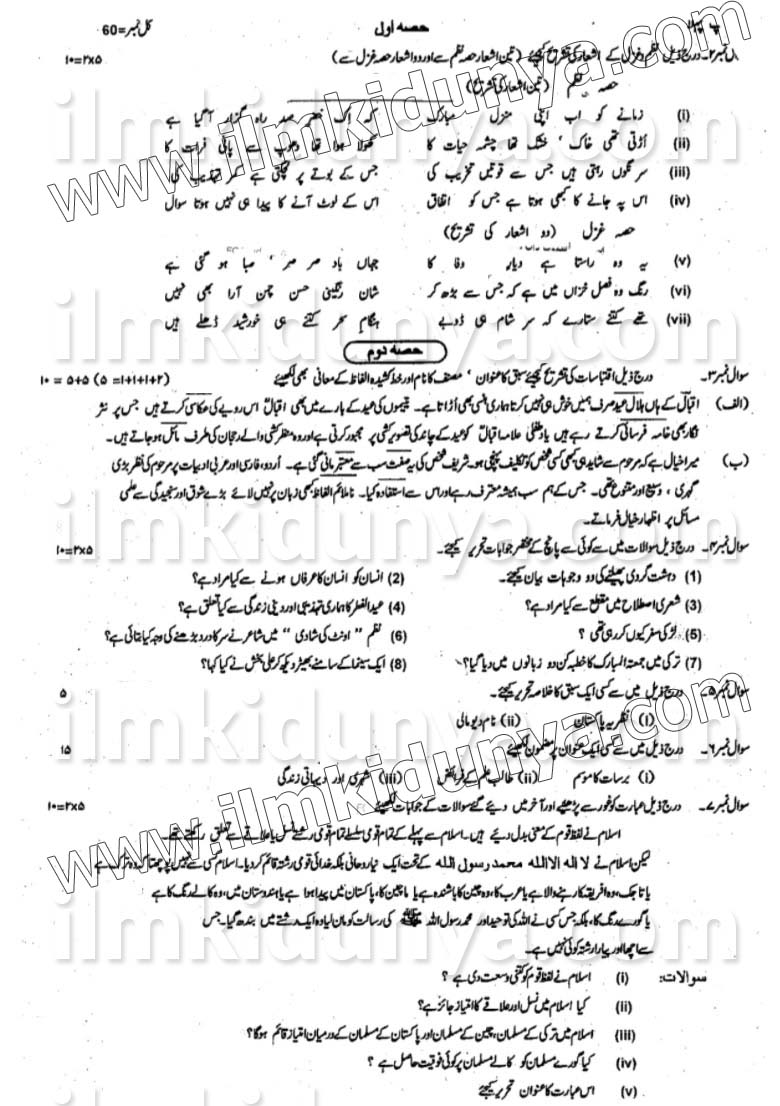 حصہ اول کل نمبر=60
درج ذیل نظم و غزل کے اشعار کی تشریح کیجئے (تین اشعار حصہ نظم سے اور دو اشعار حصہ غزل سے) ۱۰=۲x۵
حصہ نظم (تین اشعار کی تشریح)
(i) زمانے کو اب اپنی منزل مبارک کہ اک خضر صد راہ گزار آ گیا ہے
(ii) اُڑتی تھی خاک ، خشک تھا چشمہ حیات کا کھولا ہوا تھا دھوپ سے پانی فرات کا
(iii) سرنگوں رہتی ہیں جس سے قوتیں تخریب کی جس کے بوتے پر لچکتی ہے کمر تہذیب کی
(iv) اس پہ جانے کا کبھی ہوتا ہے جس کو اتفاق اس کے لوٹ آنے کا پیدا ہی نہیں ہوتا سوال
حصہ غزل (دو اشعار کی تشریح)
(v) یہ وہ راستا ہے دیار وفا کا جہاں باد صر صر ، صبا ہو گئی ہے
(vi) رنگ وہ فصل خزاں میں ہے کہ جس سے بڑھ کر شان رنگینی حسن چمن آرا بھی نہیں
(vii) تھے کتنے ستارے کہ سر شام ہی ڈوبے ہنگام سحر کتنے ہی خورشید ڈھلے ہیں
حصہ دوم
سوال نمبر ۳۔ درج ذیل اقتباسات کی تشریح کیجئے سبق کا عنوان ، مصنف کا نام اور خط کشیدہ الفاظ کے معانی بھی لکھیئے ۱۰ = ۵+۵ (۵ =۱+۱+۱+۲)
(الف) اقبال کے ہاں ہلال عید صرف ہمیں خوش ہی نہیں کرتا ہماری ہنسی بھی اُڑاتا ہے۔ یتیموں کی عید کے بارے میں بھی اقبال اس رویے کی عکاسی کرتے ہیں جس پر نثر
نگار بھی خامہ فرسائی کرتے رہے ہیں یاد طفلی علامہ اقبال کو عید کے چاند کی تصویر کشی پر مجبور کرتی ہے اور وہ منظر کشی والے رجحان کی طرف مائل ہو جاتے ہیں۔
(ب) میرا خیال ہے کہ مرحوم سے شاید ہی کبھی کسی شخص کو تکلیف پہنچی ہو۔ شریف شخص کی یہ صفت سب سے معتبر مانی گئی ہے۔ اُردو، فارسی اور عربی ادبیات پر مرحوم کی نظر بڑی
گہری ، وسیع اور متنوع تھی۔ جس کے ہم سب ہمیشہ معترف رہے اور اس سے استفادہ کیا۔ ناملائم الفاظ کبھی زبان پر نہیں لائے بڑے شوق اور سنجیدگی سے علمی
مسائل پر اظہار خیال فرماتے۔
سوال نمبر ۴۔ درج ذیل سوالات میں سے کوئی سے پانچ کے مختصر جوابات تحریر کیجئے۔ ۱۰=۲x۵
(1) دہشت گردی پھیلنے کی دو وجوہات بیان کیجئے۔ (2) انسان کو انسان کا عرفاں ہونے سے کیا مراد ہے؟
(3) شعری اصطلاح میں مقطع سے کیا مراد ہے؟ (4) عید الفطر کا ہماری تہذیبی اور دینی زندگی سے کیا تعلق ہے؟
(5) لڑکی سفر کیوں کر رہی تھی ؟ (6) نظم " اونٹ کی شادی " میں شاعر نے سر کا درد بڑھنے کی وجہ کیا بتائی ہے؟
(7) ترکی میں جمعتہ المبارک کا خطبہ کن دو زبانوں میں دیا گیا؟ (8) ایک سینما کے سامنے بھیڑ دیکھ کر علی بخش نے کیا کہا؟
سوال نمبر ۵۔ درج ذیل میں سے کسی ایک سبق کا خلاصہ تحریر کیجئے۔ ۵
(i) نظریہ پاکستان (ii) نام دیو مالی
سوال نمبر ۶۔ درج ذیل میں سے کسی ایک عنوان پر مضمون لکھیئے ۱۵
(i) برسات کا موسم (ii) طالب علم کے فرائض (iii) شہری اور دیہاتی زندگی
سوال نمبر ۷۔ درج ذیل عبارت کو غور سے پڑھیئے اور آخر میں دیئے گئے سوالات کے جوابات لکھیئے ۱۰=۲x۵
اسلام نے لفظ قوم کے معنی بدل دیئے ہیں۔ اسلام سے پہلے کے تمام قومی سلسلے تمام قومی رشتے نسل یا علاقے سے تعلق رکھتے تھے۔
لیکن اسلام نے لا الہ الا اللہ محمد رسول اللہ کے تحت ایک نیا روحانی بلکہ خدائی قومی رشتہ قائم کر دیا۔ اسلام کسی سے نہیں پوچھتا کہ وہ ترک ہے
یا تاجک، وہ افریقہ کا رہنے والا ہے یا عرب کا، وہ چین کا باشندہ ہے یا ماچین کا، پاکستان میں پیدا ہوا ہے یا ہندوستان میں، وہ کالے رنگ کا ہے
یا گورے رنگ کا، بلکہ جس کسی نے اللہ کی توحید اور محمد رسول اللہ ﷺ کی رسالت کو مان لیا وہ ایک رشتے میں بندھ گیا۔ جس
سے اچھا اور پیارا رشتہ کوئی نہیں ہے۔
سوالات: (i) اسلام نے لفظ قوم کو کتنی وسعت دی ہے ؟
(ii) کیا اسلام میں نسل اور علاقے کا امتیاز جائز ہے؟
(iii) اسلام میں ترکی کے مسلمان، چین کے مسلمان اور پاکستان کے مسلمان کے درمیان امتیاز قائم ہوگا؟
(iv) کیا گورے مسلمان کو کالے مسلمان پر کوئی فوقیت حاصل ہے ؟
(v) اس عبارت کا عنوان تحریر کیجئے
www.ilmkidunya.com
ilmkidunya.com
ilmkidunya.com
ilmkidunya.com
www.ilmkidunya.com
ilmkidunya.com
ilmkidunya.com